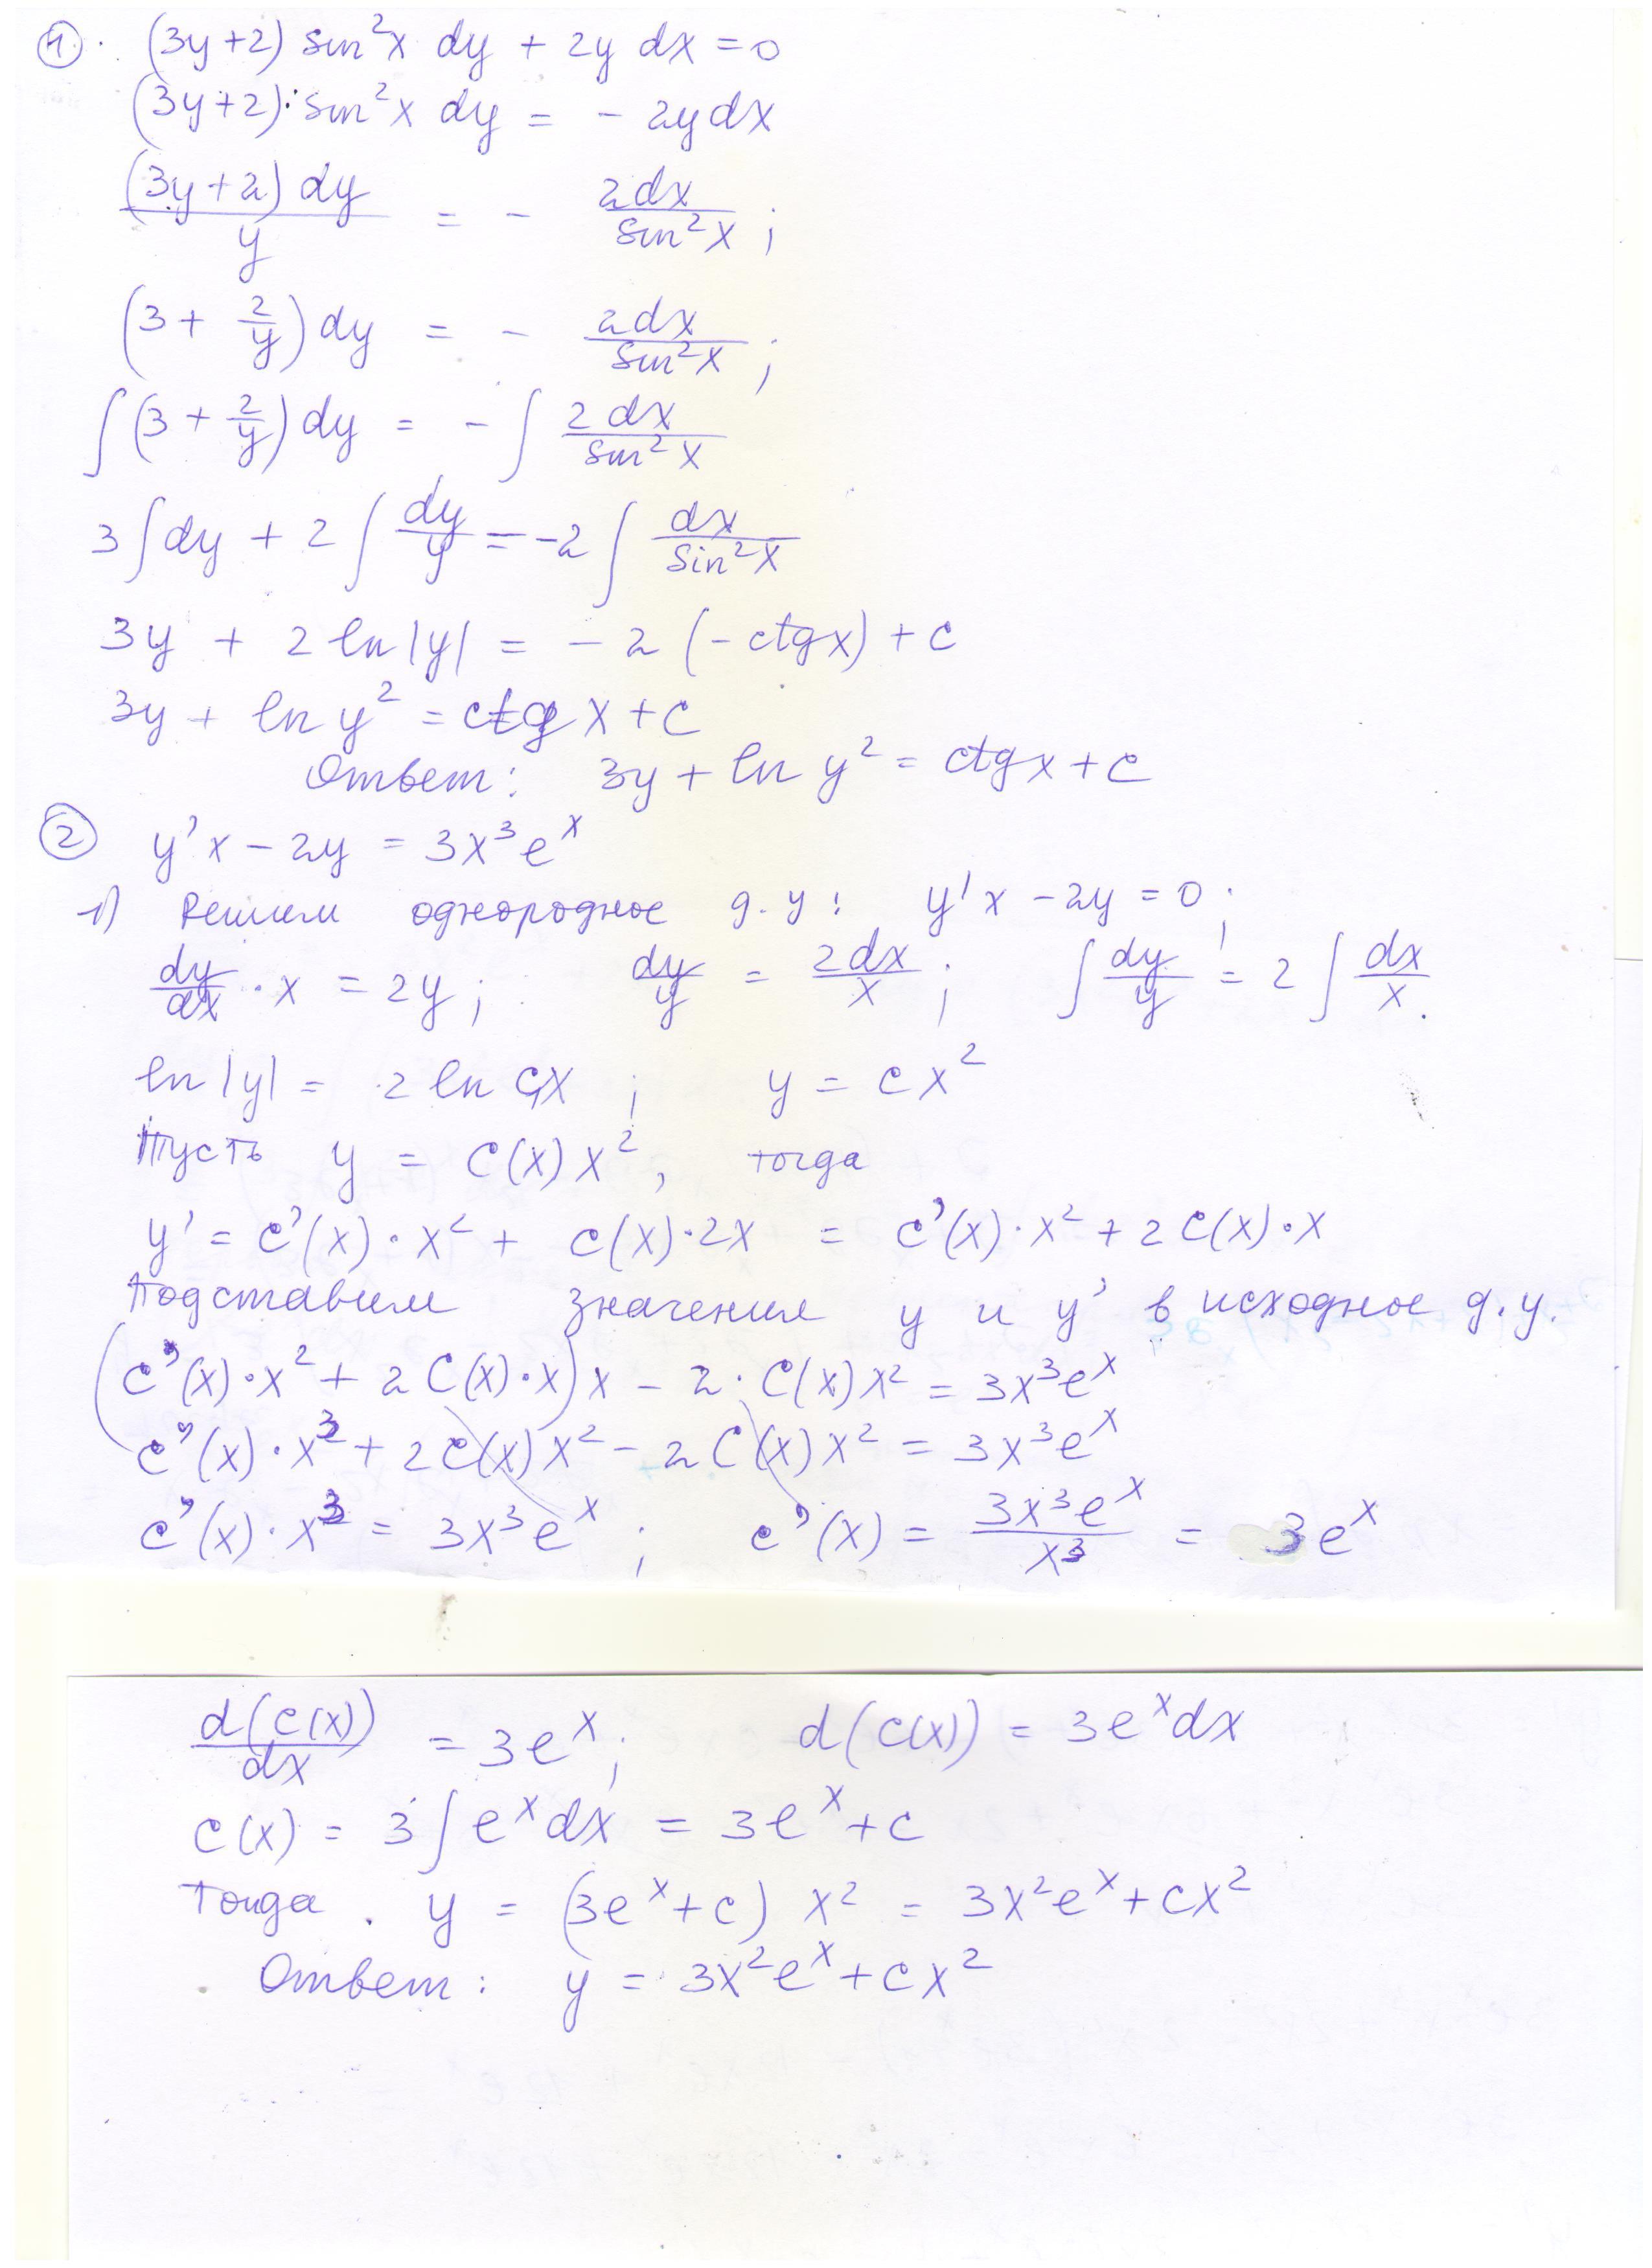 ① (3y+2) sin²x dy + 2y dx = 0
(3y+2)·sin²x dy = - 2y dx
(3y+2) dy / y = - 2dx / sin²x ;
(3 + 2/y) dy = - 2dx / sin²x ;
∫(3 + 2/y) dy = - ∫ 2dx / sin²x
3∫dy + 2∫ dy/y = -2 ∫ dx / sin²x
3y + 2 ln|y| = - 2 (- ctgx) + c
3y + ln y² = ctg x + c
Ответ: 3y + ln y² = ctgx + c
② y'x - 2y = 3x³eˣ
1) Решим однородное д.у: y'x - 2y = 0 ;
dy/dx · x = 2y ; dy/y = 2dx/x ; ∫ dy/y = 2 ∫ dx/x .
ln|y| = 2 ln c₁x ; y = cx²
Пусть y = c(x) x², тогда
y' = c'(x)·x² + c(x)·2x = c'(x)·x² + 2c(x)·x
Подставим значения y и y' в исходное д.у.
(c'(x)·x² + 2c(x)·x)x - 2·c(x)x² = 3x³eˣ
c'(x)·x³ + 2c(x)x² - 2c(x)x² = 3x³eˣ
c'(x)·x³ = 3x³eˣ ; c'(x) = 3x³eˣ / x³ = 3eˣ
d(c(x))/dx = 3eˣ ; d(c(x)) = 3eˣdx
c(x) = 3∫eˣdx = 3eˣ + c
Тогда y = (3eˣ + c) x² = 3x²eˣ + cx²
Ответ: y = 3x²eˣ + cx²